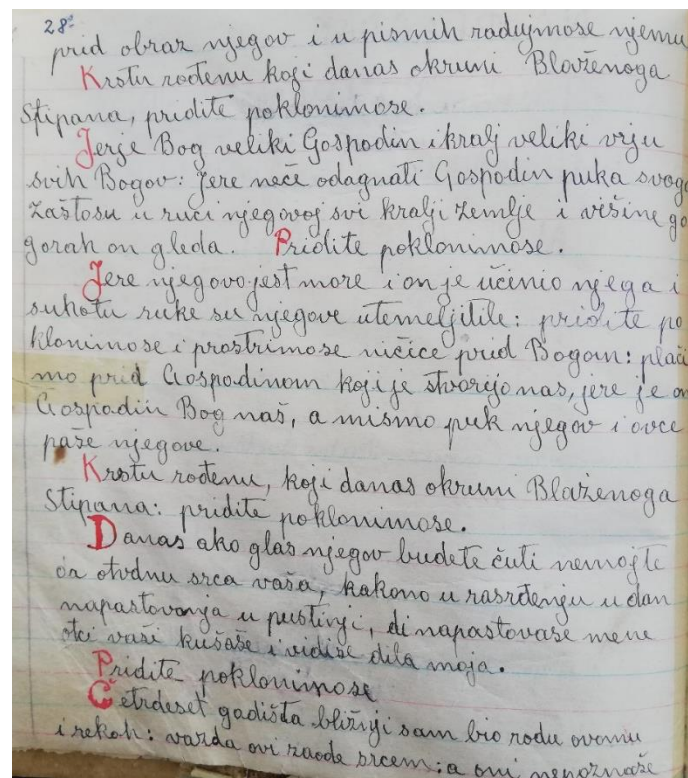 28.
prid obraz njegov i u pismih radujmose njemu
Krstu rođenu koji danas okruni Blaženoga
Stipana, pridite poklonimose.
Jerje Bog veliki Gospodin i kralj veliki vrju
svih Bogov: Jere neče odagnati Gospodin puka svoga
zaštosu u ruci njegovoj svi kralji zemlje i višine go
gorah on gleda. Pridite poklonimose.
Jere njegovo jest more i on je učinio njega i
suhotu ruke su njegove utemeljitile: pridite po
klonimose i prostrimose ničice prid Bogom: plači
mo prid Gospodinom koji je stvorijo nas, jere je on
Gospodin Bog naš, a mismo puk njegov i ovce
paše njegove.
Krstu rođenu, koji danas okruni Blaženoga
Stipana: pridite poklonimose.
Danas ako glas njegov budete čuti nemojte
da otvdnu srca vaša, kakono u rasrđenju u dan
napastovanja u pustinji, di napastovaše mene
otci vaši kušaše i vidiše dila moja.
Pridite poklonimose
Četrdeset gadišta bližnji sam bio rodu ovomu
i rekoh: vazda ovi zaode srcem: a oni nepoznaše